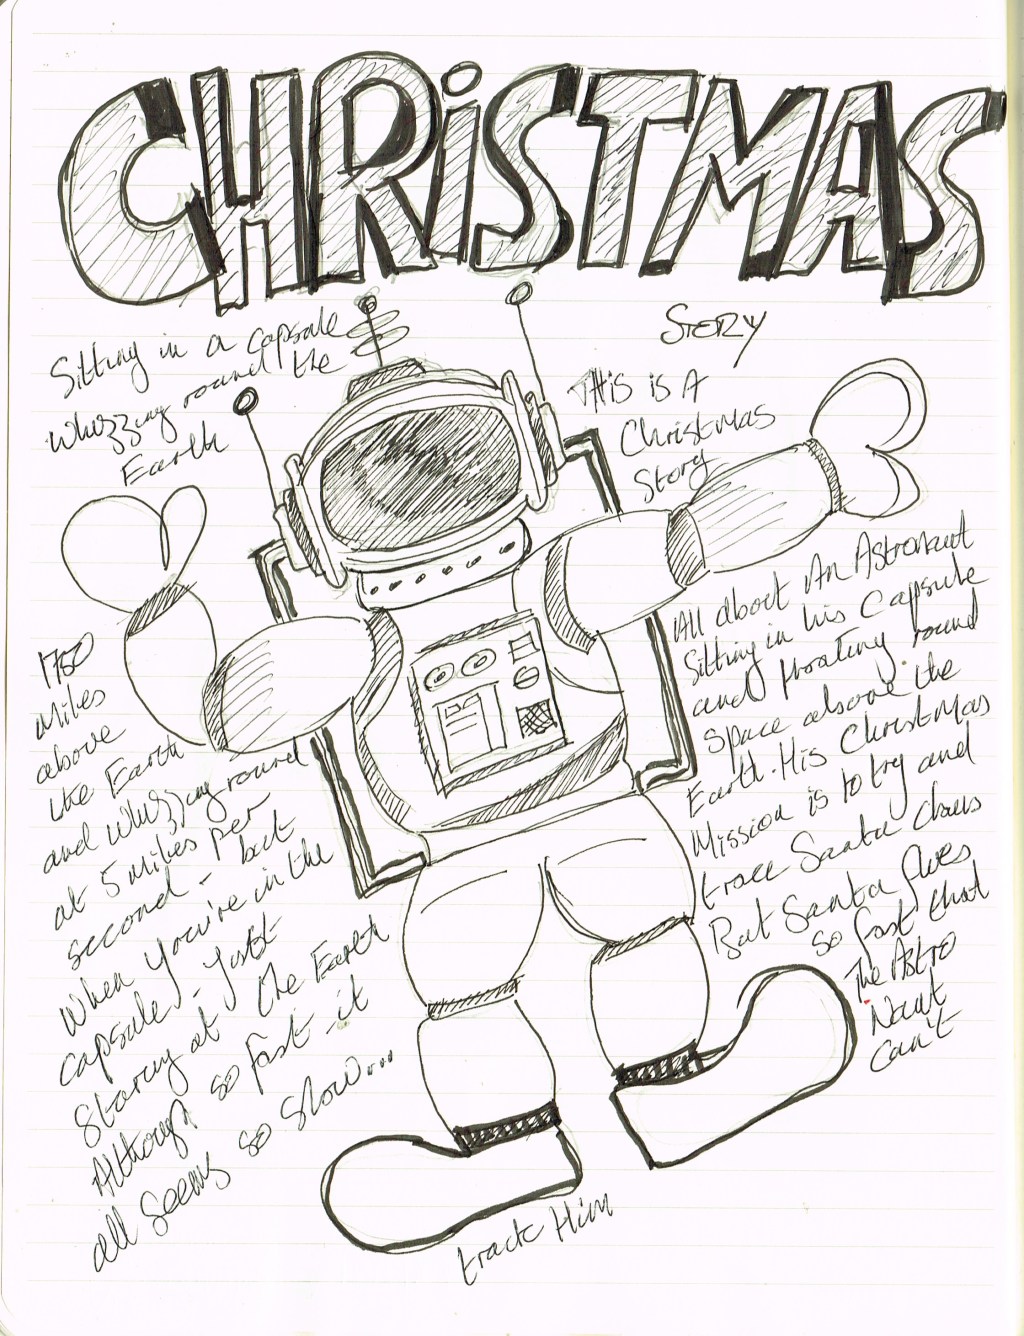 CHRiSTMAS
Story
Sitting in a capsule
whizzing round the
Earth
1750
Miles
above
the Earth
and whizzing round
at 5 miles per
second - but
When you're in the
capsule - just
staring at the Earth
Although so fast - it
all seems so slow....
This is A
Christmas
Story
All about An Astronaut
Sitting in his Capsule
and floating round
space above the
Earth. His Christmas
Mission is to try and
trace Santa Claus
But Santa flies
so fast that
The Astro
Naut
Can't
track Him